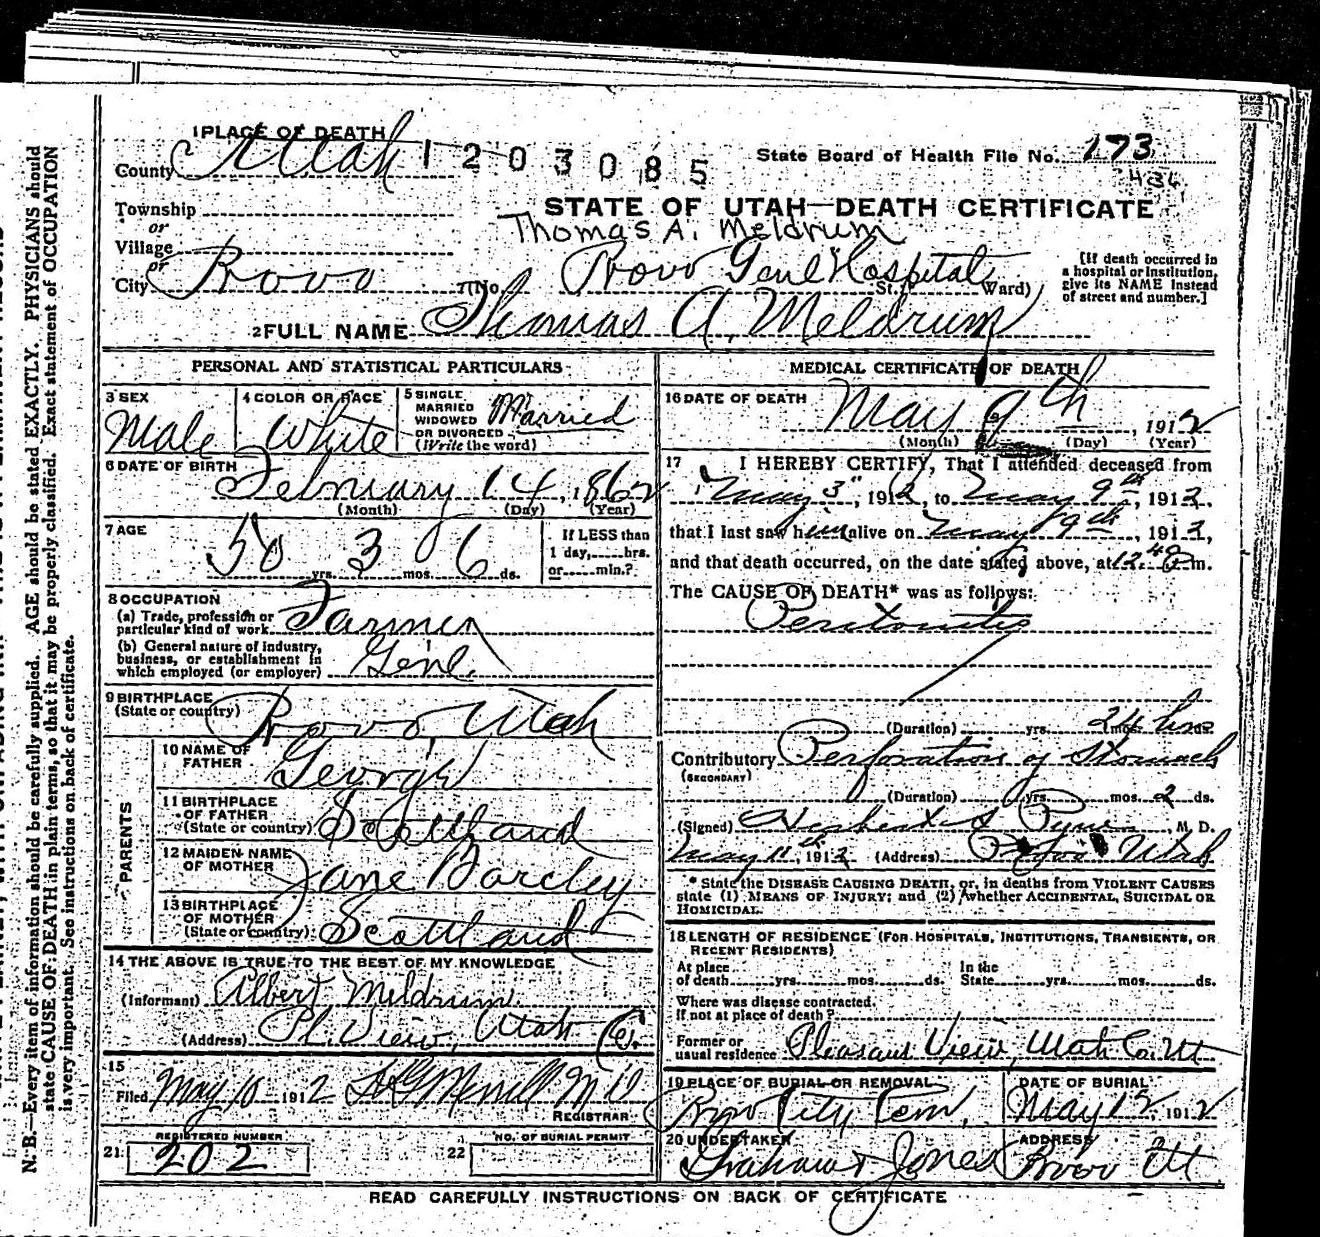 1 PLACE OF DEATH
County Utah 1 2 0 3 0 8 5 State Board of Health File No. 173
436
Township
or
Village
or
City Provo (No. Provo Genl Hospital St. Ward)
STATE OF UTAH—DEATH CERTIFICATE
Thomas A. Meldrum
[If death occurred in a hospital or institution, give its NAME instead of street and number.]
2 FULL NAME Thomas A. Meldrum
PERSONAL AND STATISTICAL PARTICULARS
3 SEX Male
4 COLOR OR RACE White
5 SINGLE MARRIED WIDOWED OR DIVORCED (Write the word) Married
6 DATE OF BIRTH February 14, 1862
(Month) (Day) (Year)
7 AGE 50 yrs. 3 mos. 6 ds.
If LESS than 1 day, hrs. or min.?
8 OCCUPATION
(a) Trade, profession or particular kind of work Farmer
(b) General nature of industry, business, or establishment in which employed (or employer) Genl.
9 BIRTHPLACE (State or country) Provo, Utah
PARENTS
10 NAME OF FATHER George
11 BIRTHPLACE OF FATHER (State or country) Scottland
12 MAIDEN NAME OF MOTHER Jane Barcley
13 BIRTHPLACE OF MOTHER (State or country) Scottland
14 THE ABOVE IS TRUE TO THE BEST OF MY KNOWLEDGE
(Informant) Albert Meldrum
(Address) Pl. View, Utah Co.
15
Filed May 10 1912 Merrill M D
REGISTRAR
REGISTERED NUMBER
21 202
NO. OF BURIAL PERMIT
22
MEDICAL CERTIFICATE OF DEATH
16 DATE OF DEATH May 9th, 1912
(Month) (Day) (Year)
17 I HEREBY CERTIFY, That I attended deceased from
May 3", 1912, to May 9th, 1912,
that I last saw him alive on May 9th, 1912,
and that death occurred, on the date stated above, at 12.40 m.
The CAUSE OF DEATH* was as follows:
Peritonitis
(Duration) yrs. mos. 24 hrs ds.
Contributory Perforation of Stomach
(SECONDARY)
(Duration) yrs. mos. 2 ds.
(Signed) Herbert S Pyne, M. D.
May 11th, 1912 (Address) Provo Utah
* State the DISEASE CAUSING DEATH, or, in deaths from VIOLENT CAUSES
state (1) MEANS OF INJURY; and (2) whether ACCIDENTAL, SUICIDAL OR
HOMICIDAL.
18 LENGTH OF RESIDENCE (FOR HOSPITALS, INSTITUTIONS, TRANSIENTS, OR
RECENT RESIDENTS)
At place of death yrs. mos. ds. In the State yrs. mos. ds.
Where was disease contracted, if not at place of death?
Former or usual residence Pleasant View, Utah Co. Ut
19 PLACE OF BURIAL OR REMOVAL Provo City Cem.
DATE OF BURIAL May 12, 1912
20 UNDERTAKER Graham & Jones
ADDRESS Provo Ut
READ CAREFULLY INSTRUCTIONS ON BACK OF CERTIFICATE
N. B.—Every item of information should be carefully supplied. AGE should be stated EXACTLY. PHYSICIANS should
state CAUSE OF DEATH in plain terms, so that it may be properly classified. Exact statement of OCCUPATION
is very important. See instructions on back of certificate.